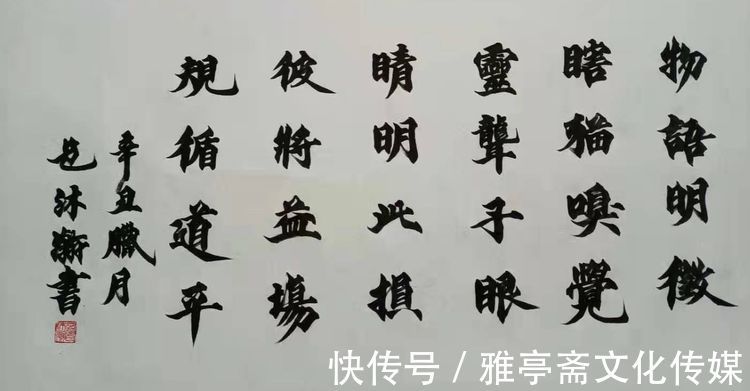 物語明徵
瞎猫嗅覺
靈聾子眼
晴明此損
彼將益場
規循道平
辛丑臘月
沐漸書
快传号 / 雅亭斋文化传媒